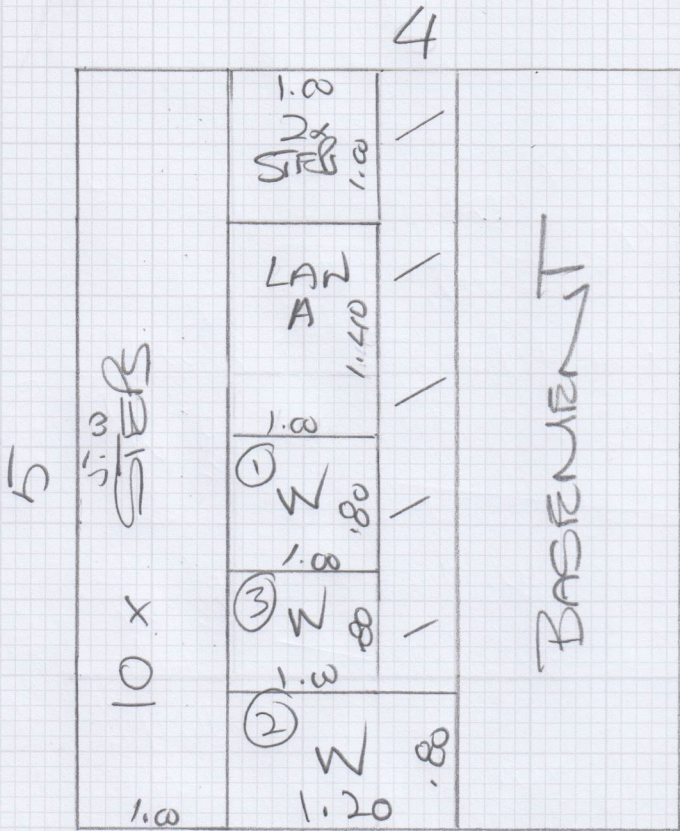 4
5
10 x STEPS
5.3
1.00
1.00
2x
STEPS
1.00
LAN
A
1.40
1.00
1
W
.80
1.00
3
W
.80
1.00
2
W
.80
1.20
BASEMENT